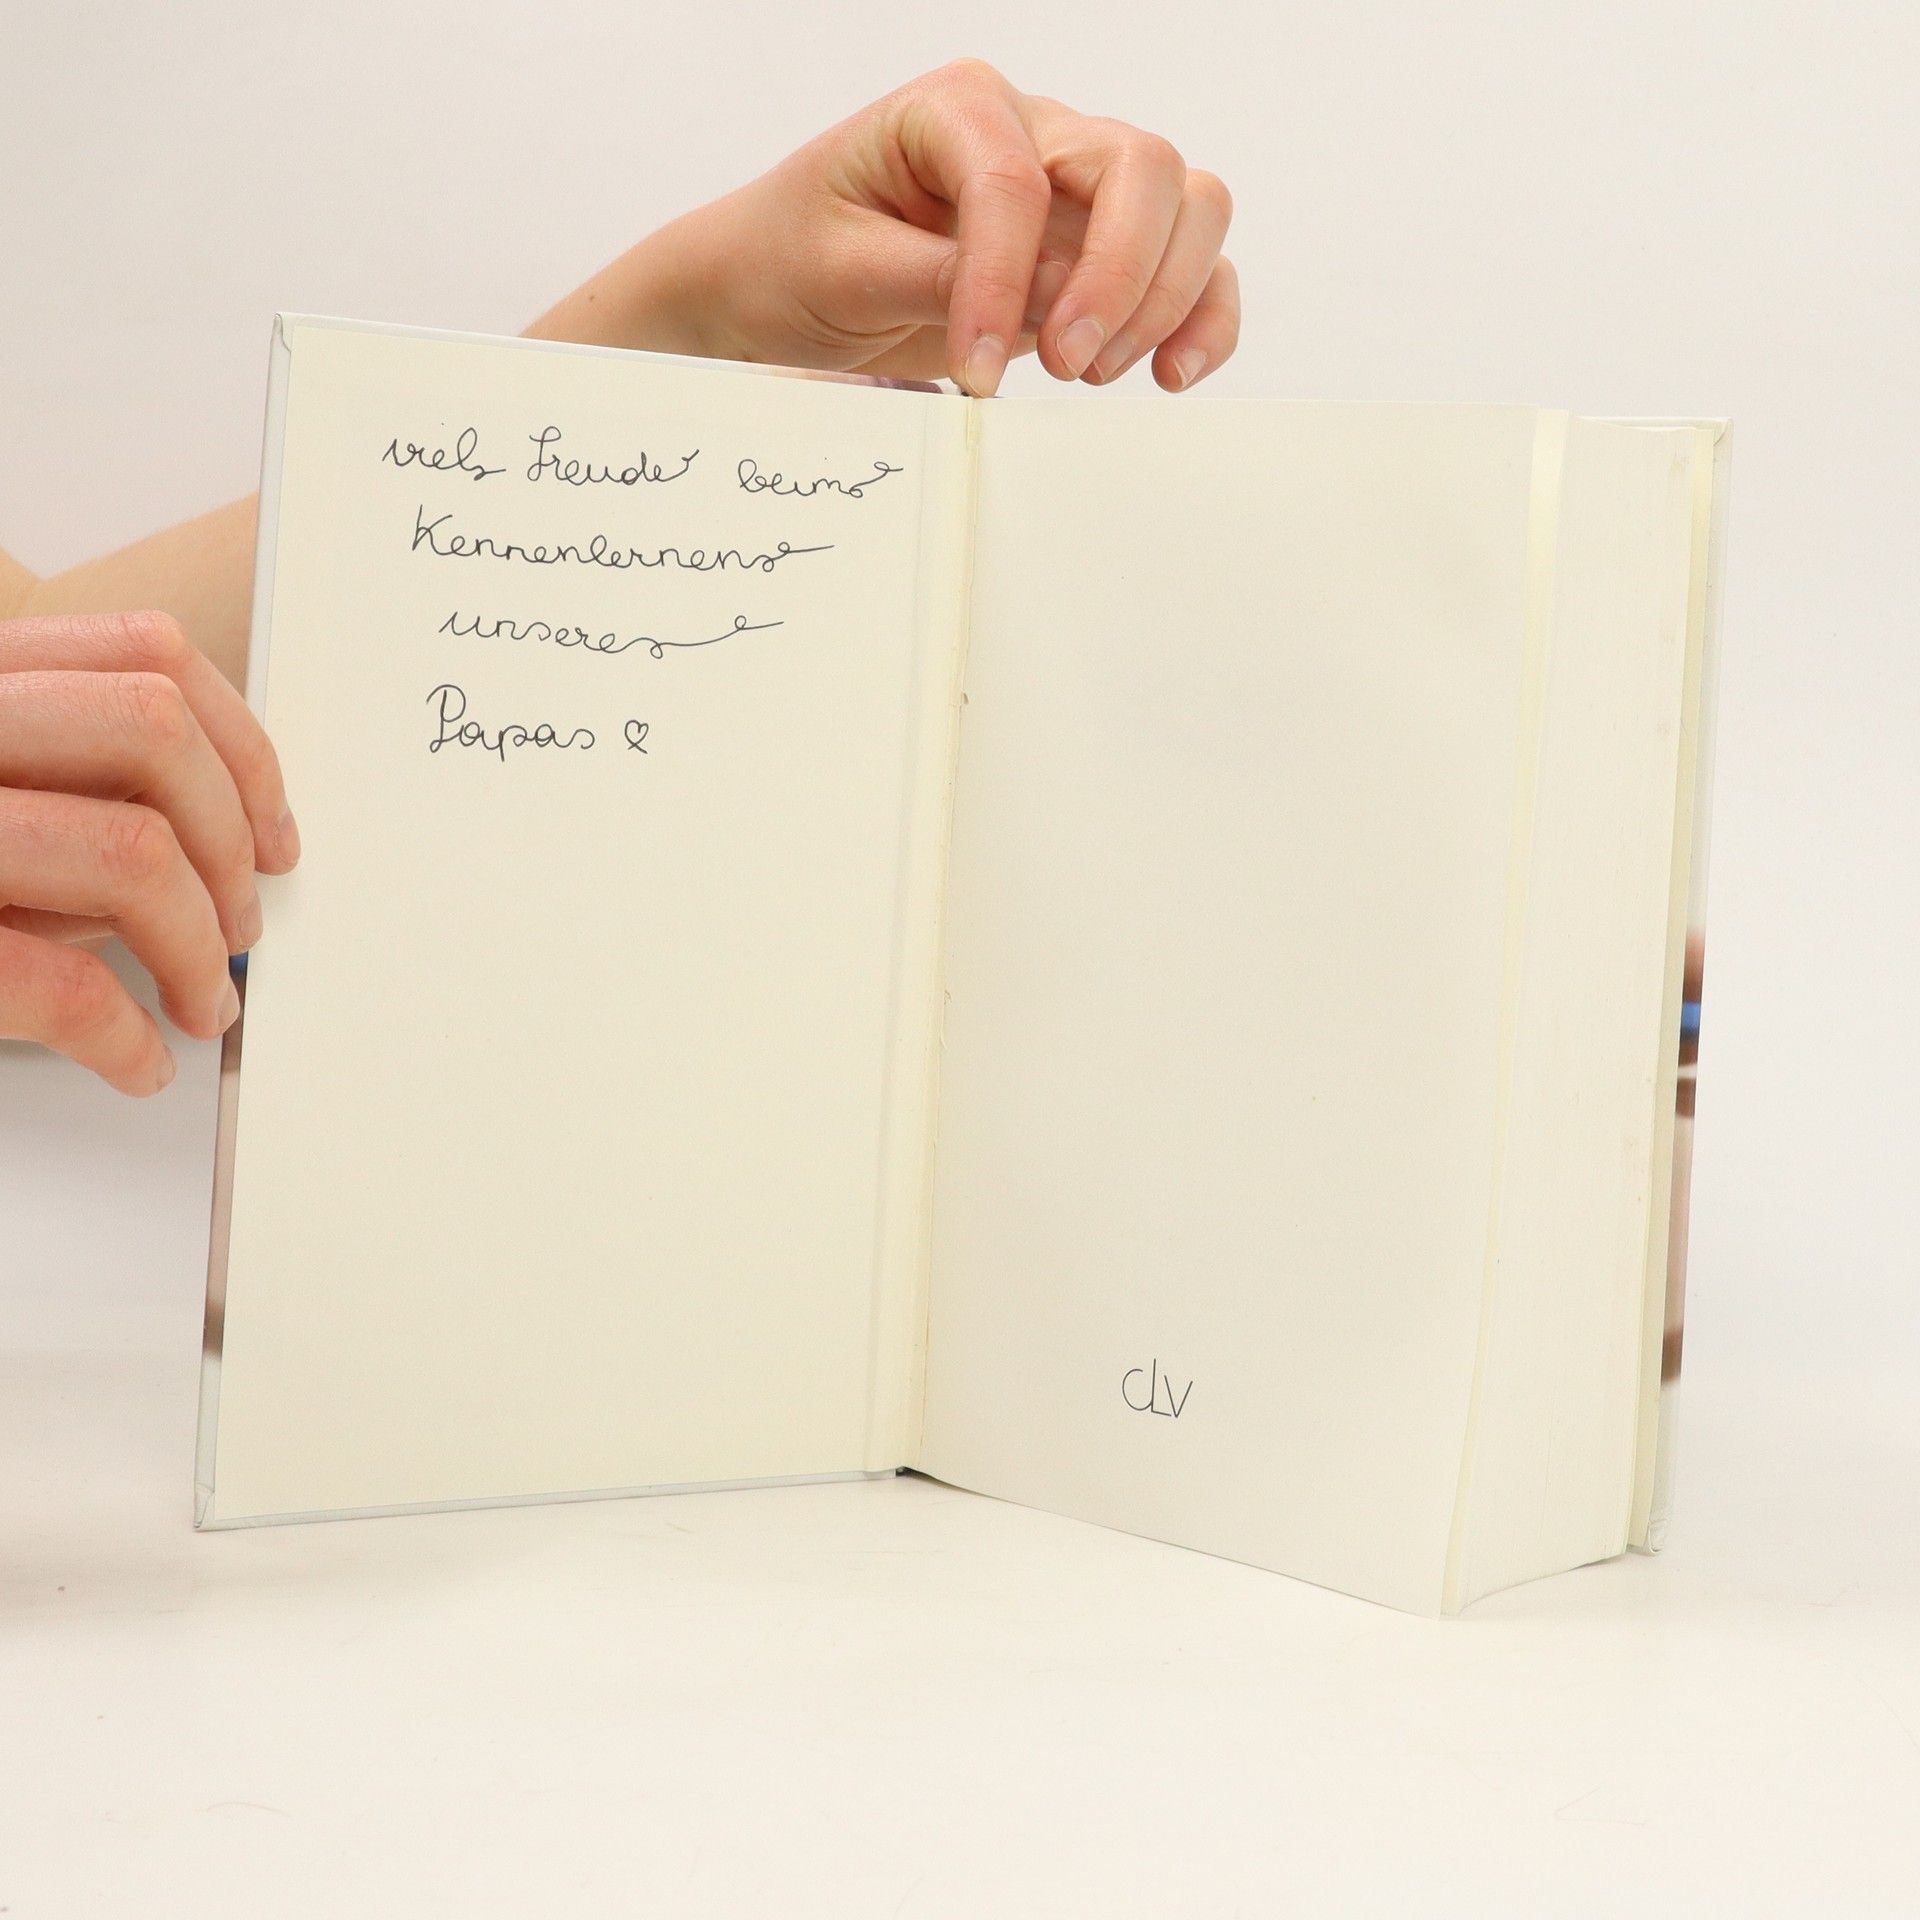 viel Freude beim
Kennenlernen
unseres
Papas ♡
clv